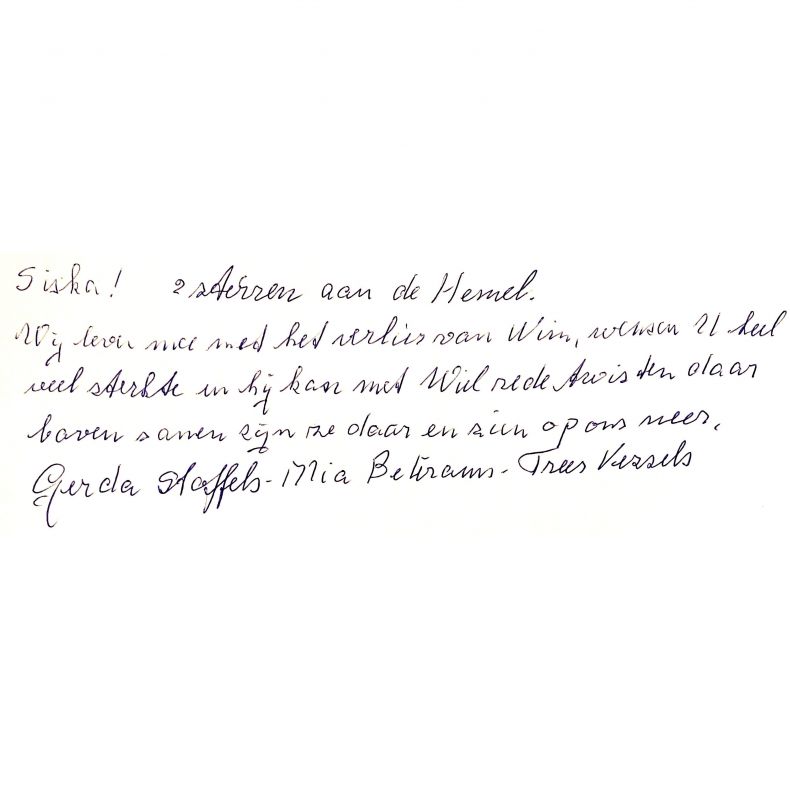 Siska! 2 sterren aan de Hemel.
Wij leven mee met het verlies van Wim, wensen U heel
veel sterkte en hij kan met Wiel redetwisten daar
boven samen zijn ze daar en zien op ons neer.
Gerda Staffels - Mia Betrams - Trees Vessels